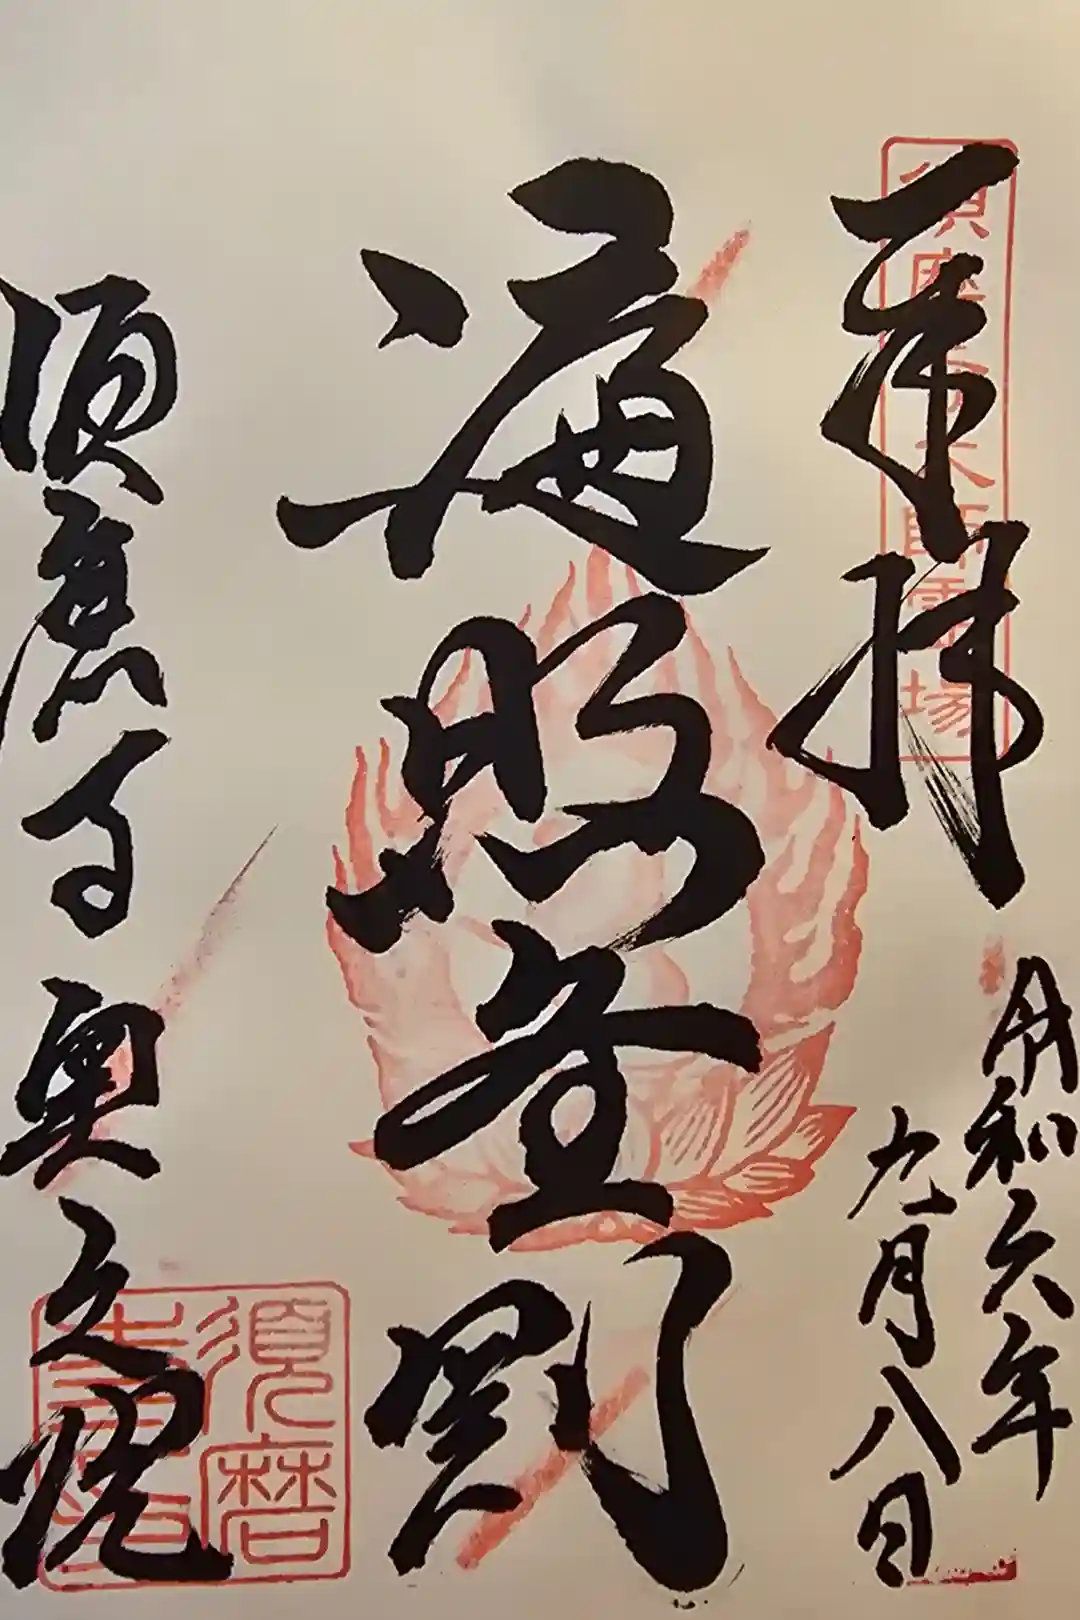 奉拝
令和六年
九月八日
遍照金剛
須磨寺奥之院
須磨寺大師霊場
須磨